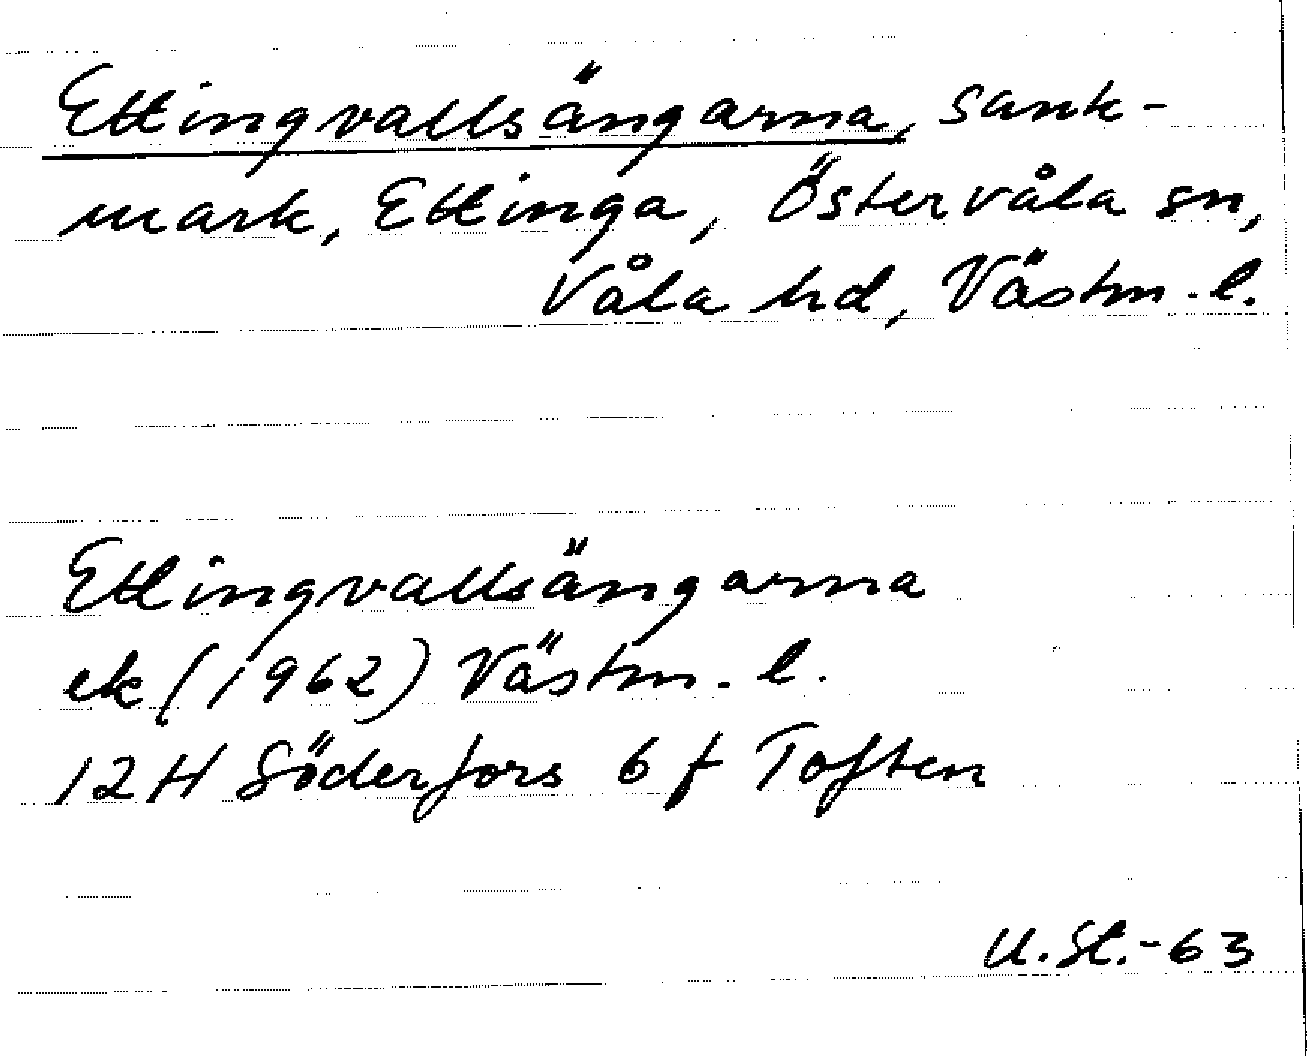 Ettingvallsängarna, sank-
mark, Ettinga, Östervåla sn,
Våla hd, Västm. l.
Ettingvallsängarna
ek (1962) Västm. l.
12 H Söderfors 6 f Toften
U. St. -63